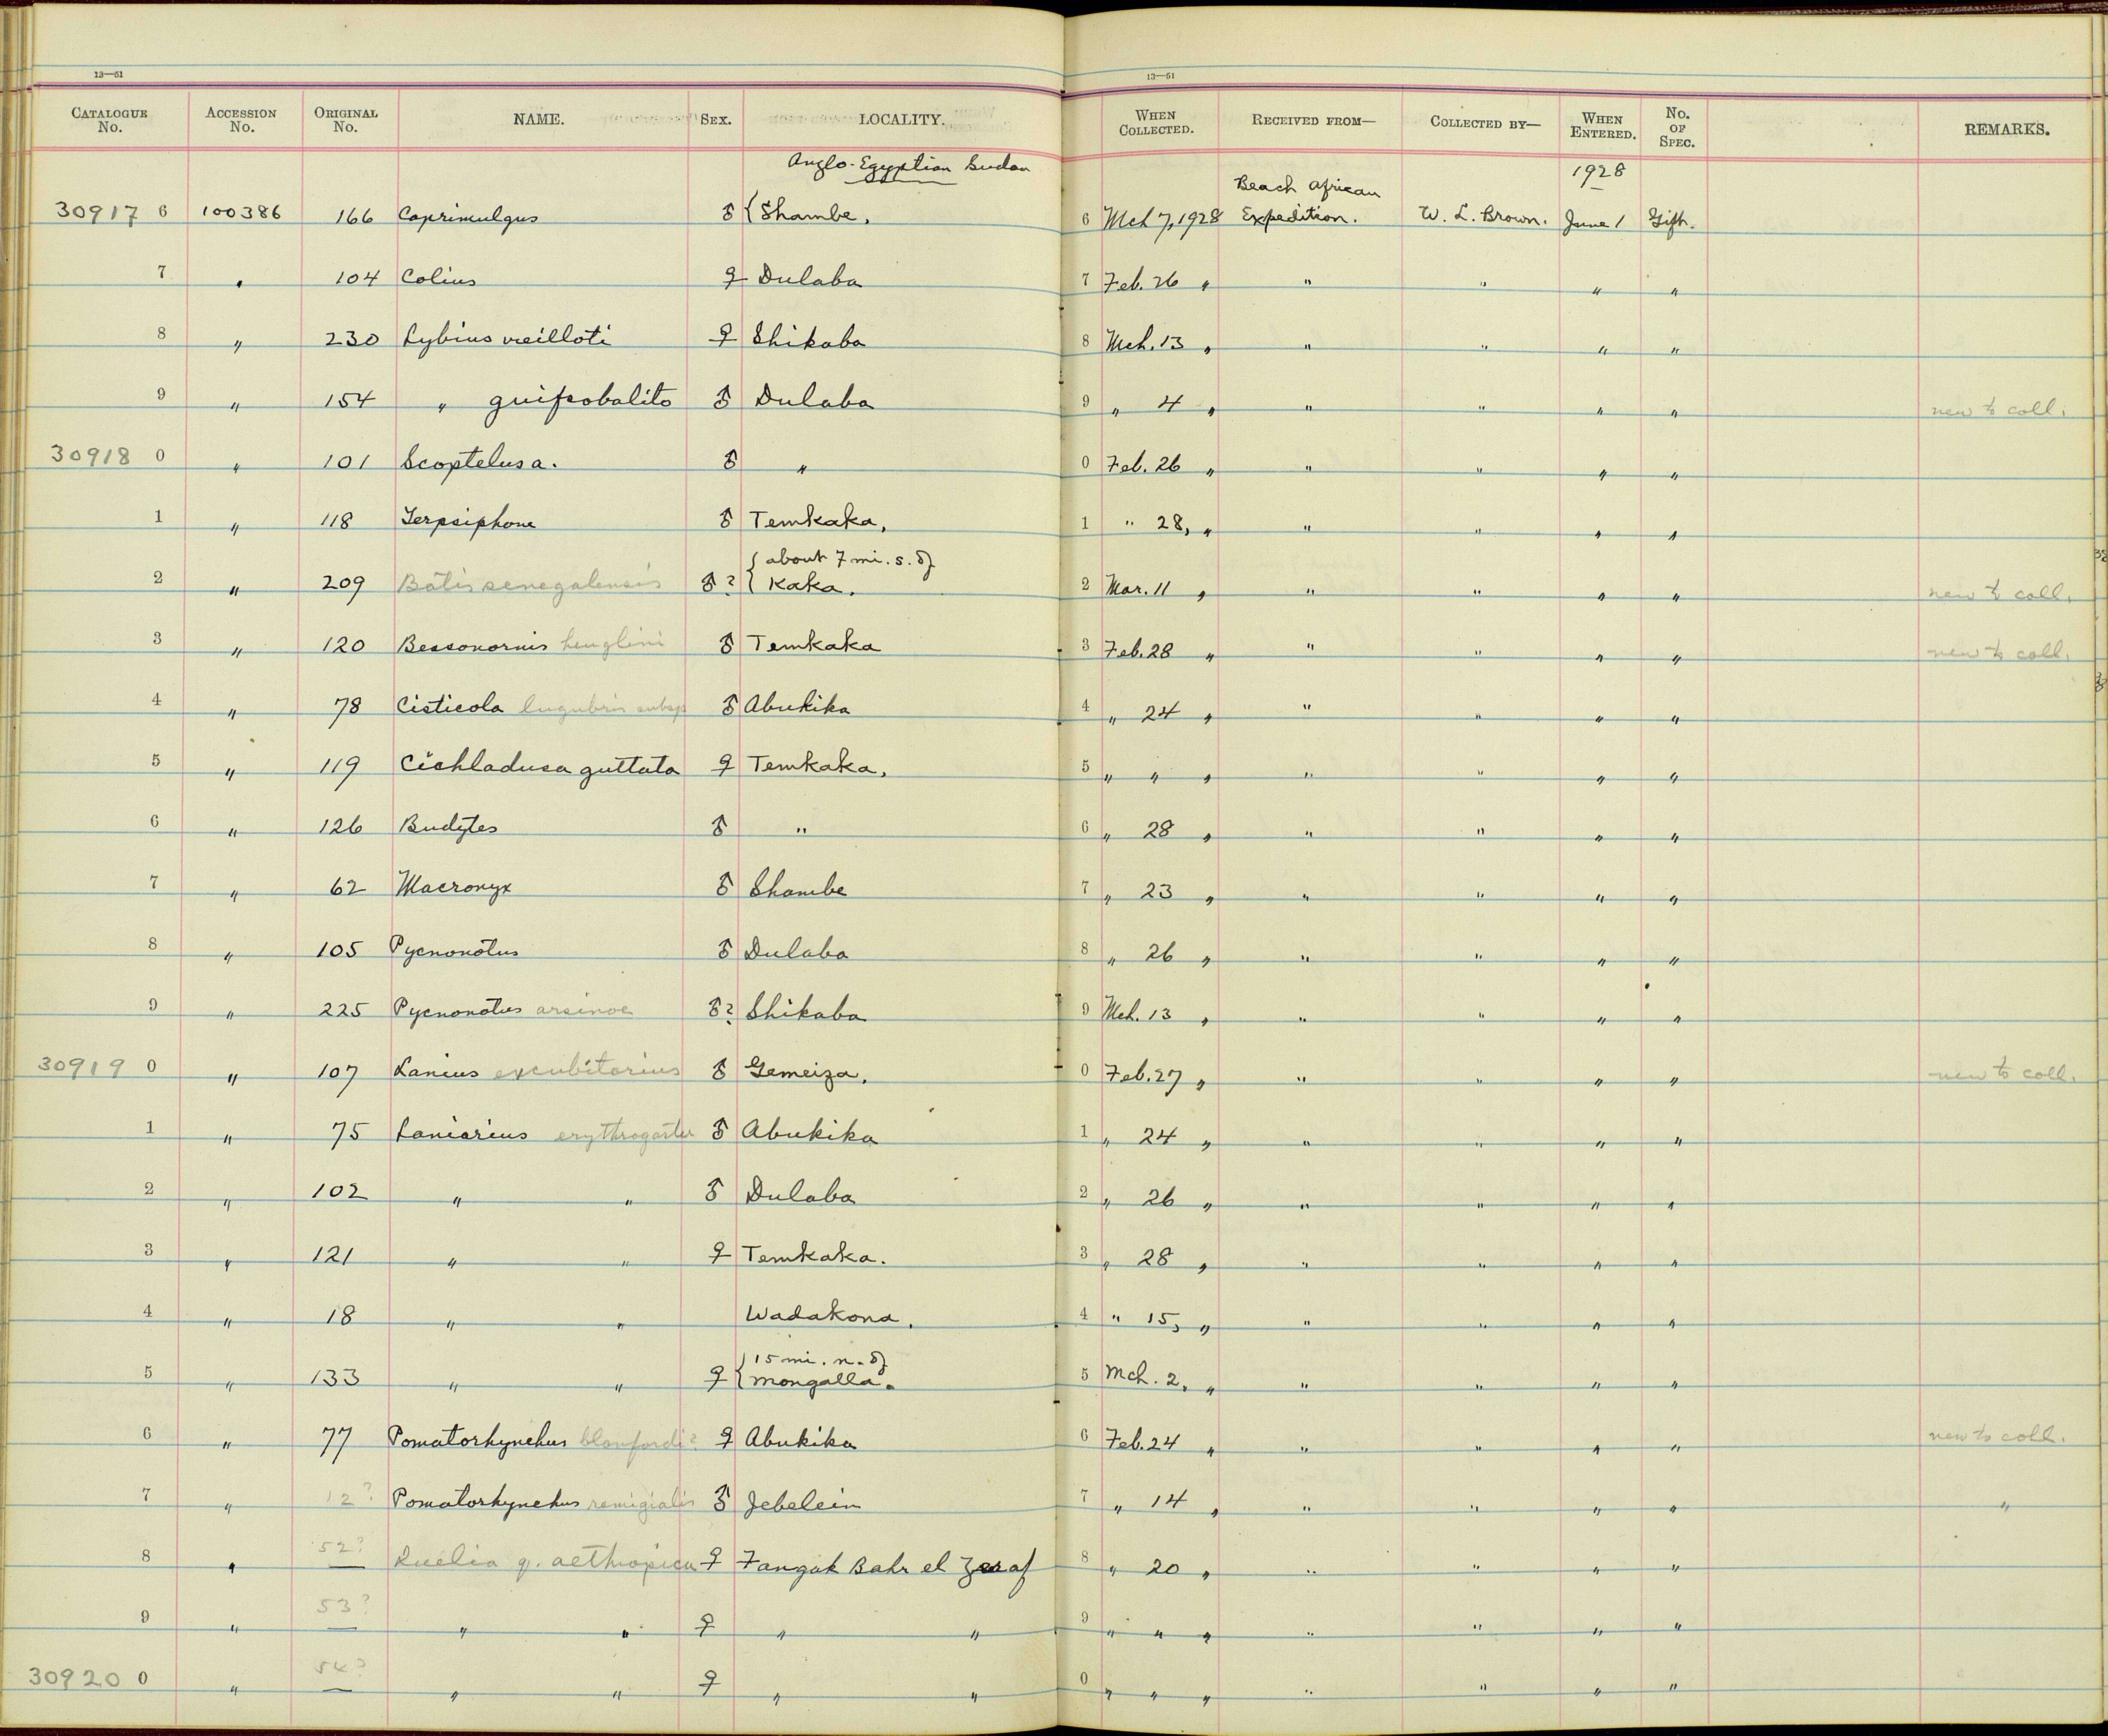 13—51
CATALOGUE No. ACCESSION No. ORIGINAL No. NAME. SEX. LOCALITY.
Anglo-Egyptian Sudan
30917 6 100386 166 Caprimulgus ♂ { Shambe,
7 " 104 Colius ♀ Dulaba
8 " 230 Lybius vieilloti ♀ Shikaba
9 " 154 " guifsobalito ♂ Dulaba
30918 0 " 101 Scoptelus a. ♂ "
1 " 118 Terpsiphone ♂ Temkaka,
{ about 7 mi. s. of
2 " 209 Batis senegalensis ♂? { Kaka.
3 " 120 Bessonornis heuglini ♂ Temkaka
4 " 78 Cisticola lugubris subsp ♂ Abukika
5 " 119 Cichladusa guttata ♀ Temkaka,
6 " 126 Budytes ♂ "
7 " 62 Macronyx ♂ Shambe
8 " 105 Pycnonotus ♂ Dulaba
9 " 225 Pycnonotus arsinoe ♂? Shikaba
30919 0 " 107 Lanius excubitorius ♂ Gemeiza,
1 " 75 Laniarius erythrogaster ♂ Abukika
2 " 102 " " ♂ Dulaba
3 " 121 " " ♀ Temkaka.
4 " 18 " " Wadakona,
{ 15 mi. n. of
5 " 133 " " ♀ { Mongalla.
6 " 77 Pomatorhynchus blanfordi? ♀ Abukika
7 " 12? Pomatorhynchus remigialis ♂ Jebelein
8 " 52? Quelia q. aethiopica ♀ Fangak Bahr el Zeraf
9 " 53? " " ♀ " "
30920 0 " 54? " " ♀ " "
13—51
WHEN COLLECTED. RECEIVED FROM— COLLECTED BY— WHEN ENTERED. No. OF SPEC. REMARKS.
1928
Beach African
6 Mch 7, 1928 Expedition. W. L. Brown. June 1 Gift.
7 Feb. 26 " " " " "
8 Mch. 13 " " " " "
9 " 4 " " " " " new to coll.
0 Feb. 26 " " " " "
1 " 28, " " " " "
2 Mar. 11 " " " " " new to coll.
3 Feb. 28 " " " " " new to coll.
4 " 24 " " " " "
5 " " " " " " "
6 " 28 " " " " "
7 " 23 " " " " "
8 " 26 " " " " "
9 Mch. 13 " " " " "
0 Feb. 27 " " " " " new to coll.
1 " 24 " " " " "
2 " 26 " " " " "
3 " 28 " " " " "
4 " 15, " " " " "
5 Mch. 2, " " " " "
6 Feb. 24 " " " " " new to coll.
7 " 14 " " " " " "
8 " 20 " " " " "
9 " " " " " " "
0 " " " " " " "